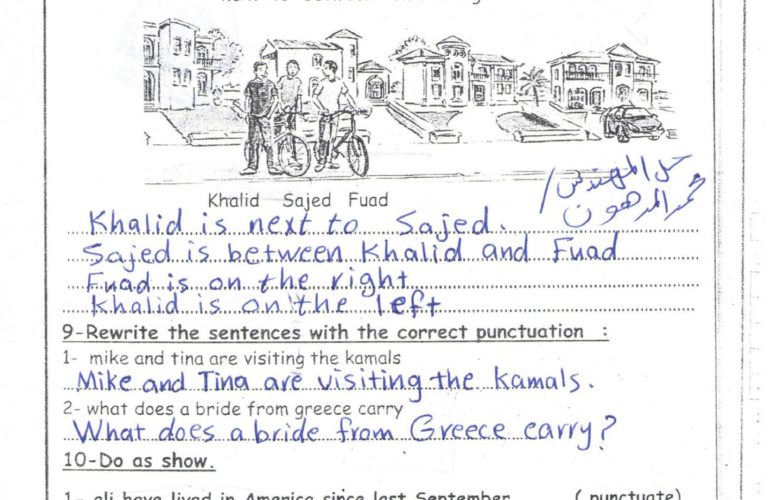 Khalid Sajed Fuad
حل المهندس/
محمد المدهون
Khalid is next to Sajed.
Sajed is between Khalid and Fuad
Fuad is on the right
Khalid is on the left
9-Rewrite the sentences with the correct punctuation :
1- mike and tina are visiting the kamals
Mike and Tina are visiting the Kamals.
2- what does a bride from greece carry
What does a bride from Greece carry?
10-Do as show.
1- ali have lived in America since last September ( punctuate)